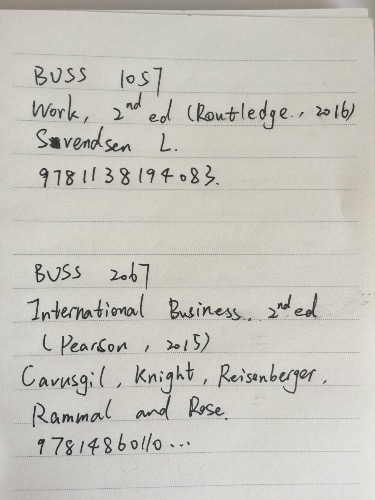 BUSS 1057
Work, 2nd ed (Routledge, 2016)
Svendsen L.
9781138194083.
BUSS 2067
International Business, 2nd ed
(Pearson, 2015)
Cavusgil, Knight, Reisenberger,
Rammal and Rose.
97814860110...